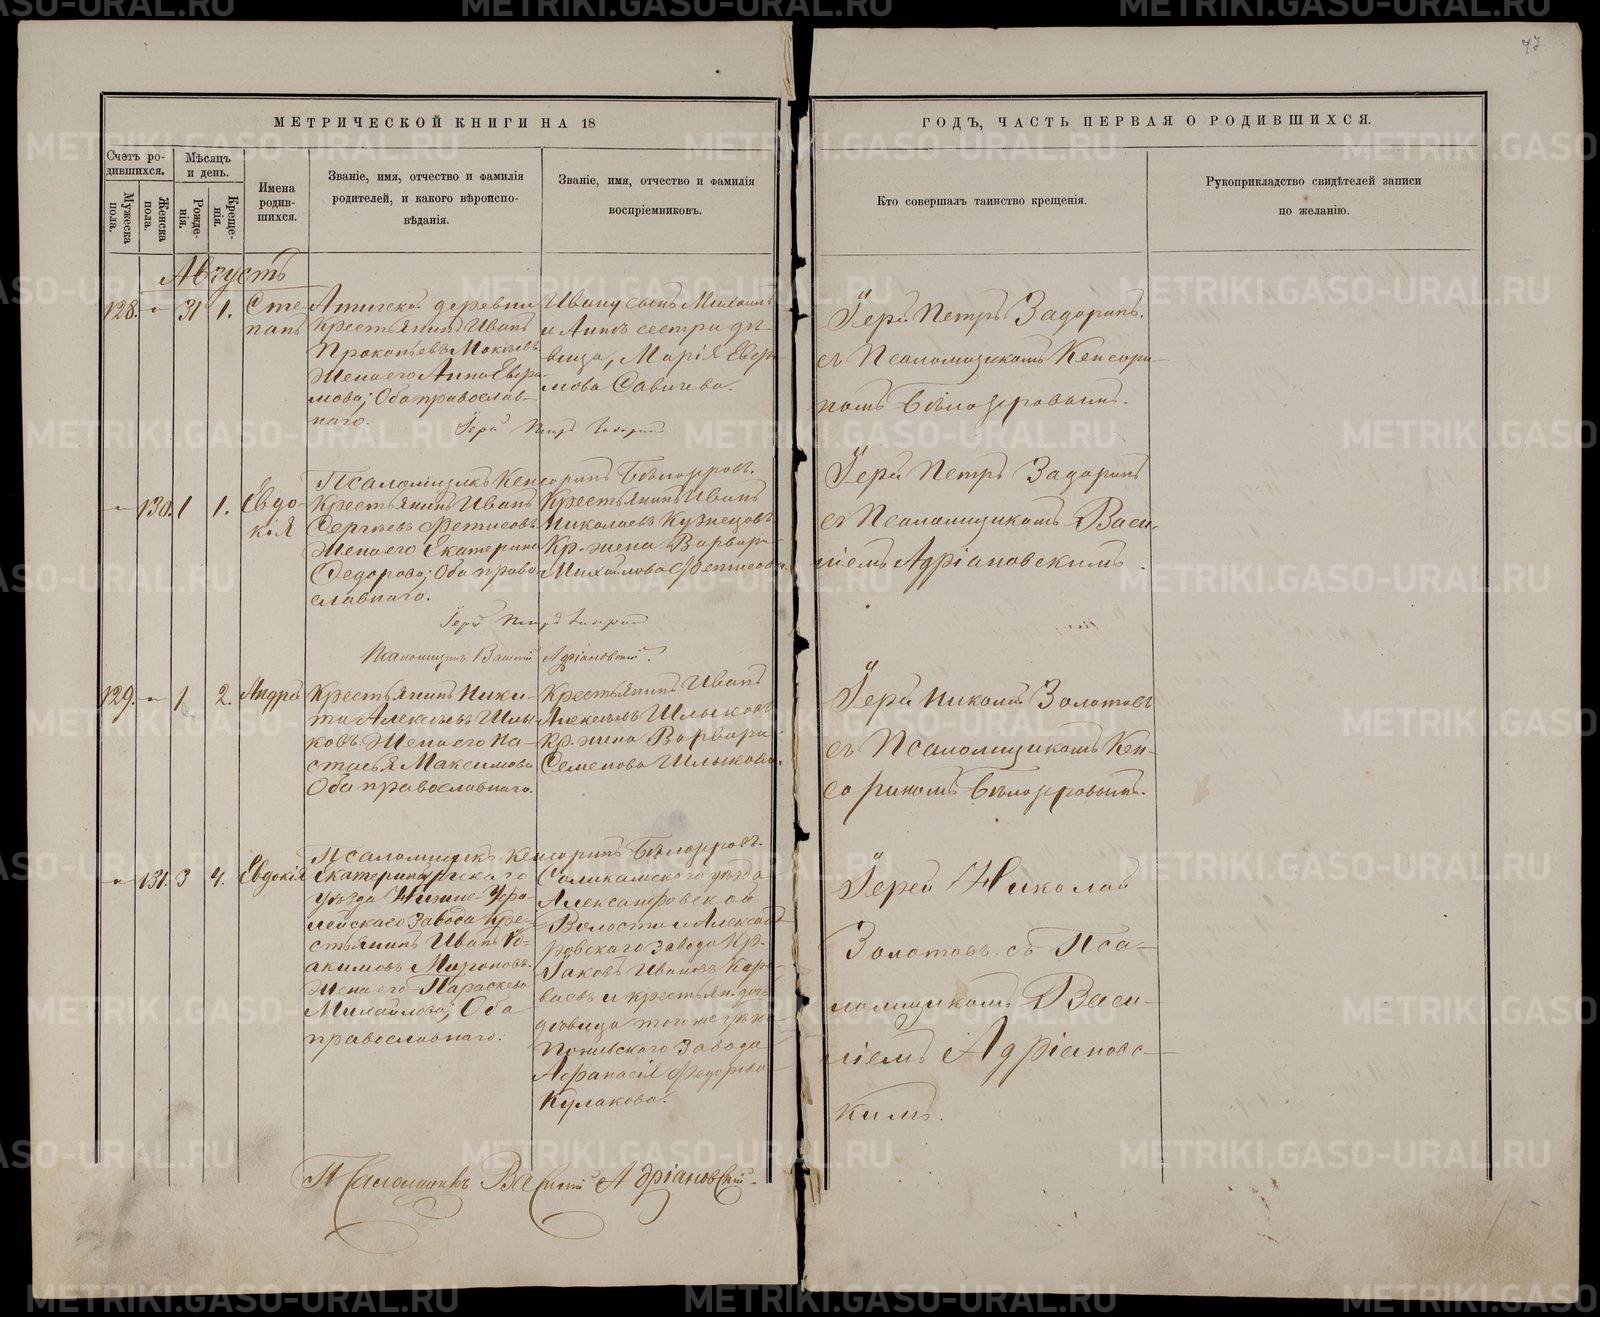 77
МЕТРИЧЕСКОЙ КНИГИ НА 18
ГОДЪ, ЧАСТЬ ПЕРВАЯ О РОДИВШИХСЯ.
Счетъ ро-
дившихся.
Мужеска
пола.
Женска
пола.
Мѣсяцъ
и день.
Рожде-
нія.
Креще-
нія.
Имена
родив-
шихся.
Званіе, имя, отчество и фамилія
родителей, и какого вѣроиспо-
вѣданія.
Званіе, имя, отчество и фамилія
воспріемниковъ.
Кто совершалъ таинство крещенія.
Рукоприкладство свидѣтелей записи
по желанію.
Августъ
128. - 31 1.
Сте
панъ
деревни
Крестьянинъ Иванъ
Прокопьевъ
Жена его Анна Евѳи-
мова; Оба православ-
наго.
Ивану сынъ Михаилъ
и Анна сестра дѣ-
вица, Марія Евѳи-
мова Савичева.
Іерей Петръ Задоринъ
Іерей Петръ Задоринъ.
съ Псаломщикомъ Кенсори-
номъ Бѣлозеровымъ.
Псаломщикъ Кенсоринъ Бѣлозеровъ.
- 130. 1 1.
Евдо-
кія
Крестьянинъ Иванъ
Сергѣевъ Фетисовъ
Жена его Екатерина
Федорова; Оба право
славнаго.
Крестьянинъ Иванъ
Николаевъ Кузнецовъ
Кр. жена Варвара
Михайлова Фетисова
Іерей Петръ Задоринъ
Псаломщикъ Василій Адріановскій.
Іерей Петръ Задоринъ
съ Псаломщикомъ Васи-
ліемъ Адріановскимъ.
129. - 1 2.
Андрей
Крестьянинъ Ники-
та Алексѣевъ Шлы
ковъ Жена его На-
стасья Максимова
Оба православнаго.
Крестьянинъ Иванъ
Алексѣевъ Шлыковъ
Кр. жена Варвара
Семенова Шлыкова.
Іерей Николай Золотовъ
съ Псаломщикомъ Кен-
сориномъ Бѣлозеровымъ.
Псаломщикъ Кенсоринъ Бѣлозеровъ.
- 131. 3 4.
Евдокія
Екатеринбургскаго
уѣзда Нижне-Уфа
лейскаго завода Кре-
стьянинъ Иванъ Іо-
акимовъ Мироновъ.
Жена его Параскева
Михайлова; Оба
православнаго.
Соликамскаго уѣзда
Александровской
Волости и Александ-
ровскаго завода Кр.
Іаковъ Ивановъ Кар-
ваевъ и крестьян. дочь
дѣвица того же уѣзда
завода
Афанасія Федорова
Кулакова.
Іерей Николай
Золотовъ съ Пса-
ломщикомъ Васи-
ліемъ Адріановс-
кимъ.
Псаломщикъ Василій Адріановскій.
METRIKI.GASO-URAL.RU